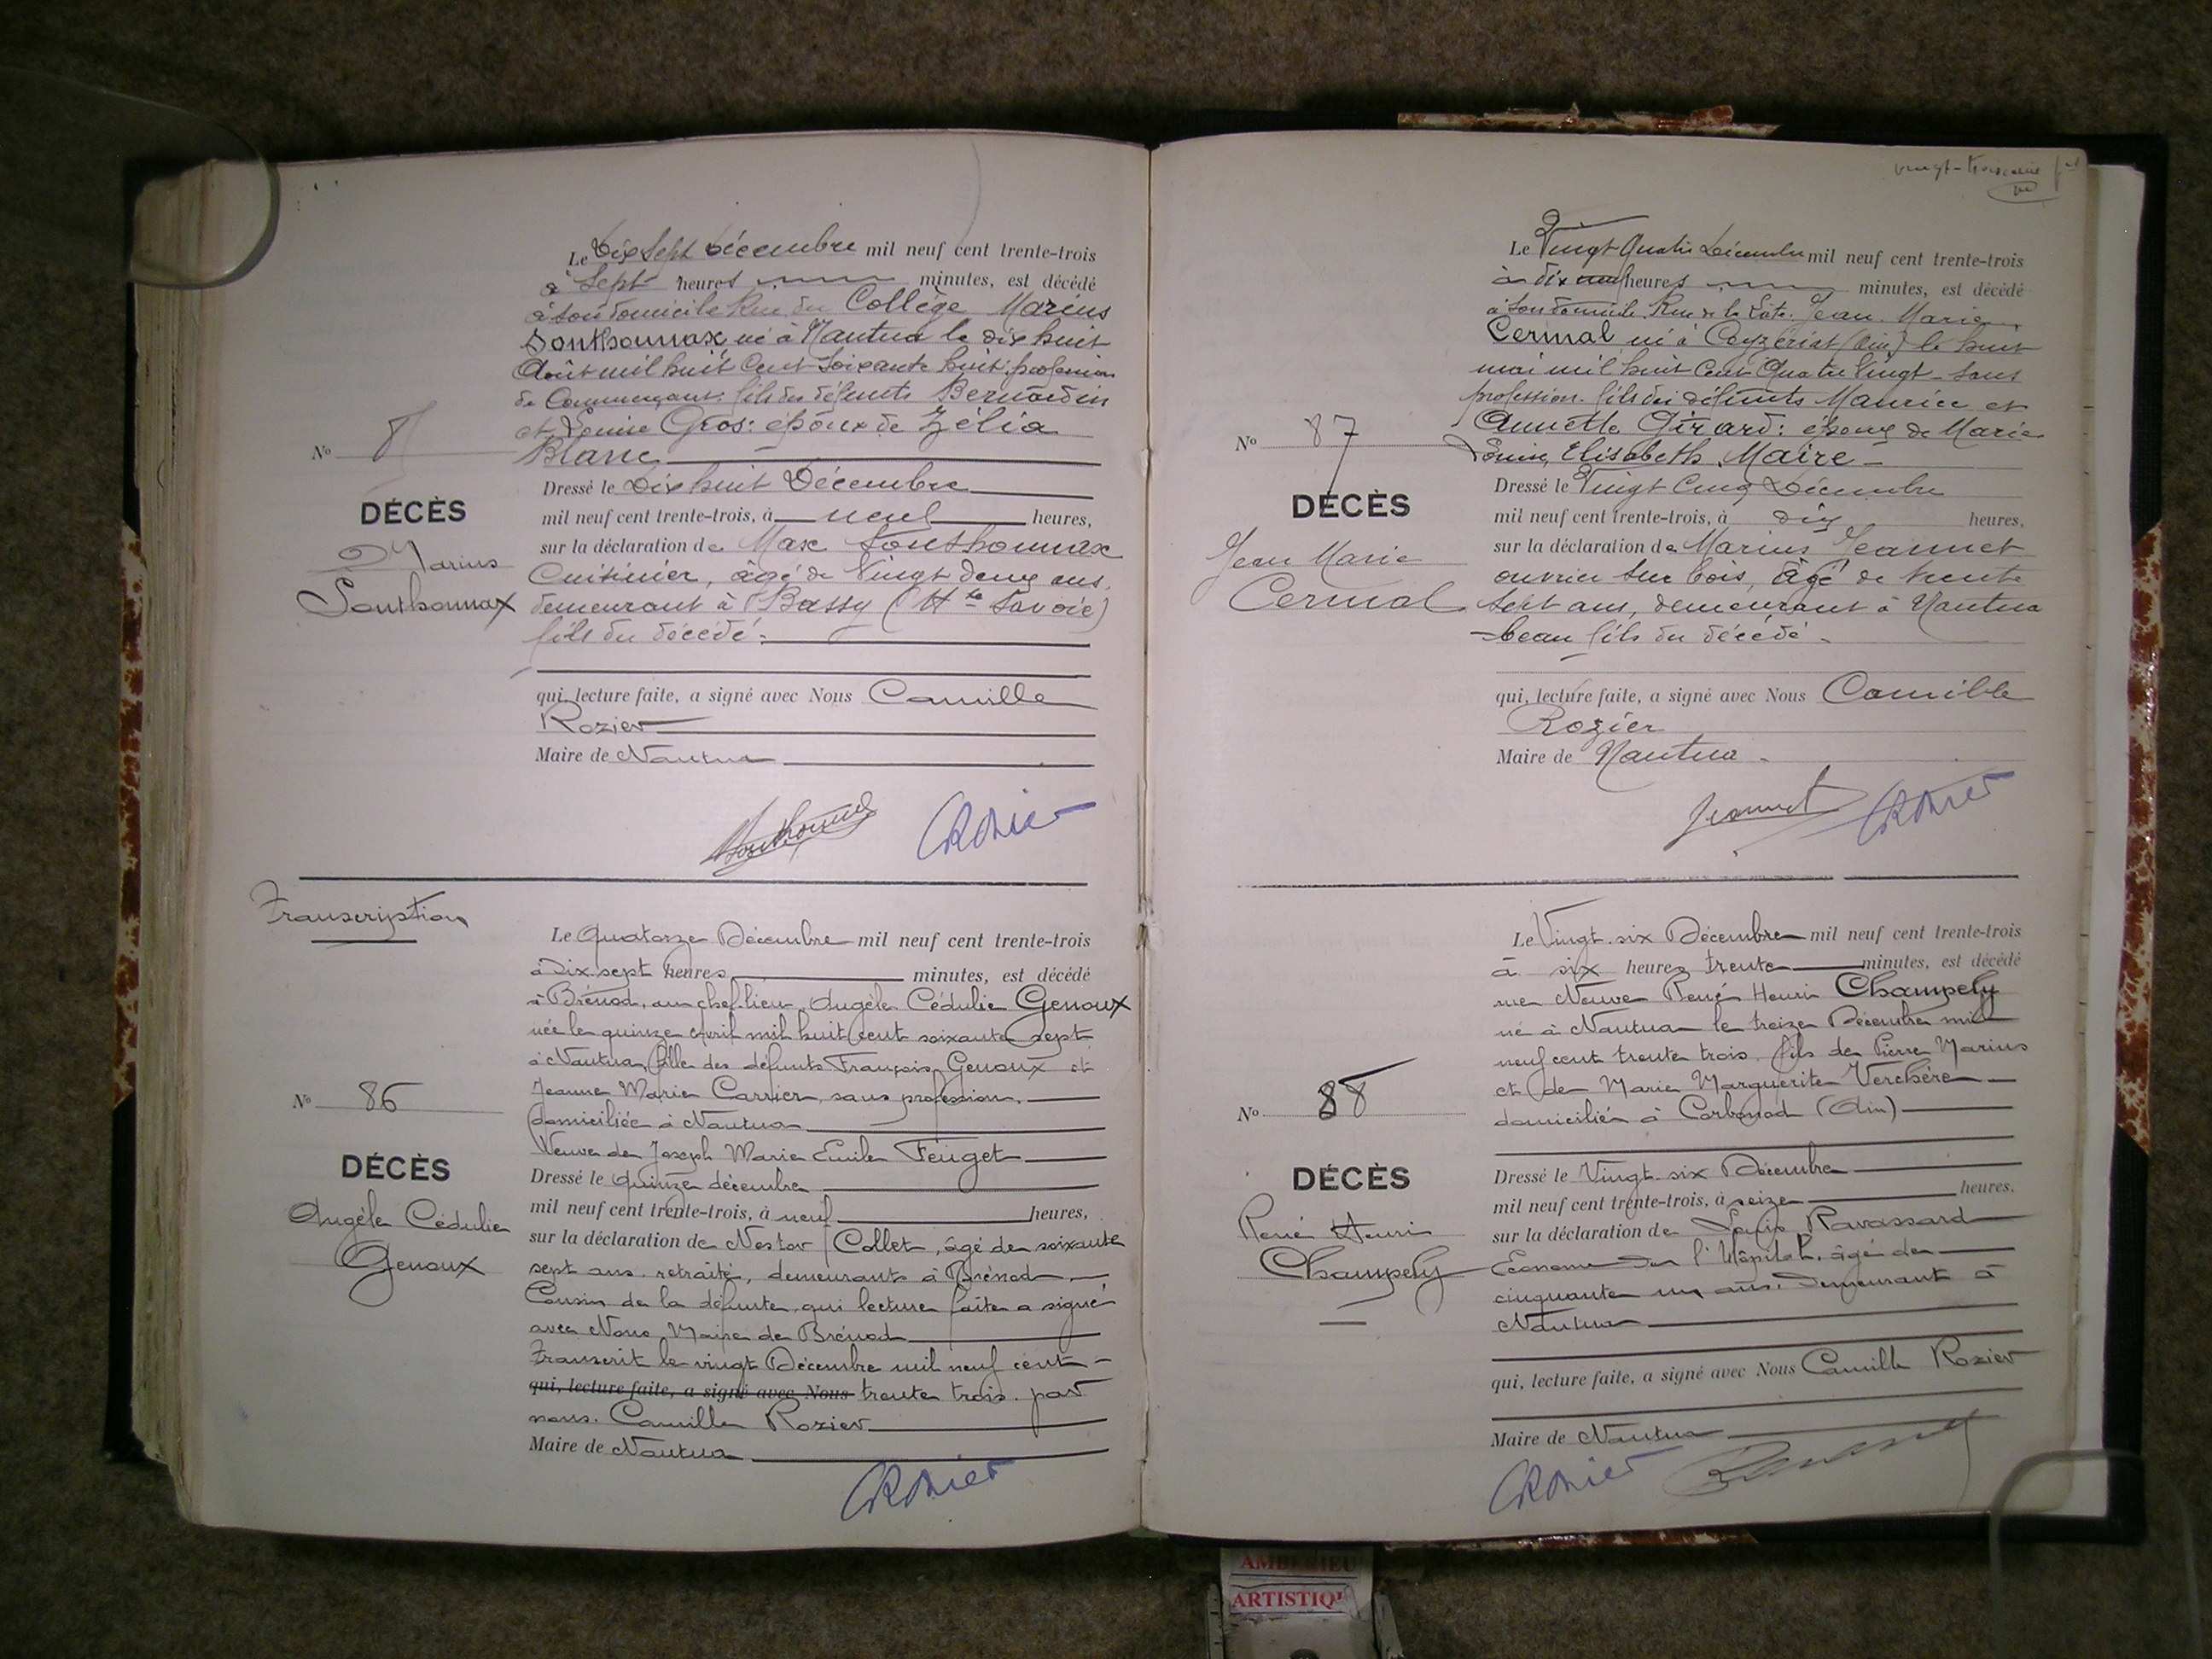 Le Dix Sept Décembre mil neuf cent trente-trois
à Sept heures minutes, est décédé
à son domicile Rue du Collège Marius
Sonthonnax né à Nantua le dix huit
Août mil huit cent soixante huit: profession
de Commerçant: fils des défunts Bernardin
et Louise Gros: époux de Zélia
Blanc
N° 8
Dressé le Dix huit Décembre
DÉCÈS
mil neuf cent trente-trois, à neuf heures,
Marius
Sonthonnax
sur la déclaration de Max Sonthonnax
Cuisinier, âgé de Vingt deux ans,
demeurant à Bassy (Hte Savoie)
fils du décédé.
qui, lecture faite, a signé avec Nous Camille
Rozier
Maire de Nantua
Sonthonnax CRozier
Transcription
Le Quatorze Décembre mil neuf cent trente-trois
à Dix sept heures minutes, est décédé
à Brénod, au chef-lieu, Angèle Cédulie Genoux
née le quinze avril mil huit cent soixante sept
à Nantua, fille des défunts François Genoux et
Jeanne Marie Carrier, sans profession.
domiciliée à Nantua
Veuve de Joseph Marie Emile Feuget
N° 86
DÉCÈS
Angèle Cédulie
Genoux
Dressé le quinze décembre
mil neuf cent trente-trois, à neuf heures,
sur la déclaration de Nestor Collet, âgé de soixante
sept ans, retraité, demeurants à Brénod
Cousin de la défunte, qui lecture faite a signé
avec Nous, Maire de Brénod
Transcrit le vingt Décembre mil neuf cent
qui, lecture faite, a signé avec Nous trente trois. par
nous. Camille Rozier
Maire de Nantua
CRozier
vingt-troisième
Le Vingt Quatre Décembre mil neuf cent trente-trois
à dix neuf heures minutes, est décédé
à son domicile, Rue de la Jean Marie
Cermal né à Ceyzériat (Ain) le huit
mai mil huit cent Quatre Vingt sans
profession. fils des défunts Maurice et
Annette Girard: époux de Marie
Louise Elisabeth Maire
N° 87
DÉCÈS
Jean Marie
Cermal
Dressé le Vingt Cinq Décembre
mil neuf cent trente-trois, à dix heures,
sur la déclaration de Marius Jeannet
ouvrier sur bois, âgé de trente
sept ans, demeurant à Nantua
beau fils du décédé
qui, lecture faite, a signé avec Nous Camille
Rozier
Maire de Nantua
Jeannet CRozier
Le Vingt six Décembre mil neuf cent trente-trois
à six heures trente minutes, est décédé
rue Neuve René Henri Champely
né à Nantua le treize Décembre mil
neuf cent trente trois. fils de Pierre Marius
et de Marie Marguerite Verchère
domiciliés à Corbonod (Ain)
N° 88
DÉCÈS
René Henri
Champely
Dressé le Vingt six Décembre
mil neuf cent trente-trois, à seize heures,
sur la déclaration de Louis Ravassard
Econome de l'Hôpital. âgé de
cinquante un ans. Demeurant à
Nantua
qui, lecture faite, a signé avec Nous Camille Rozier
Maire de Nantua
CRozier
AMBERIEU
ARTISTIQU